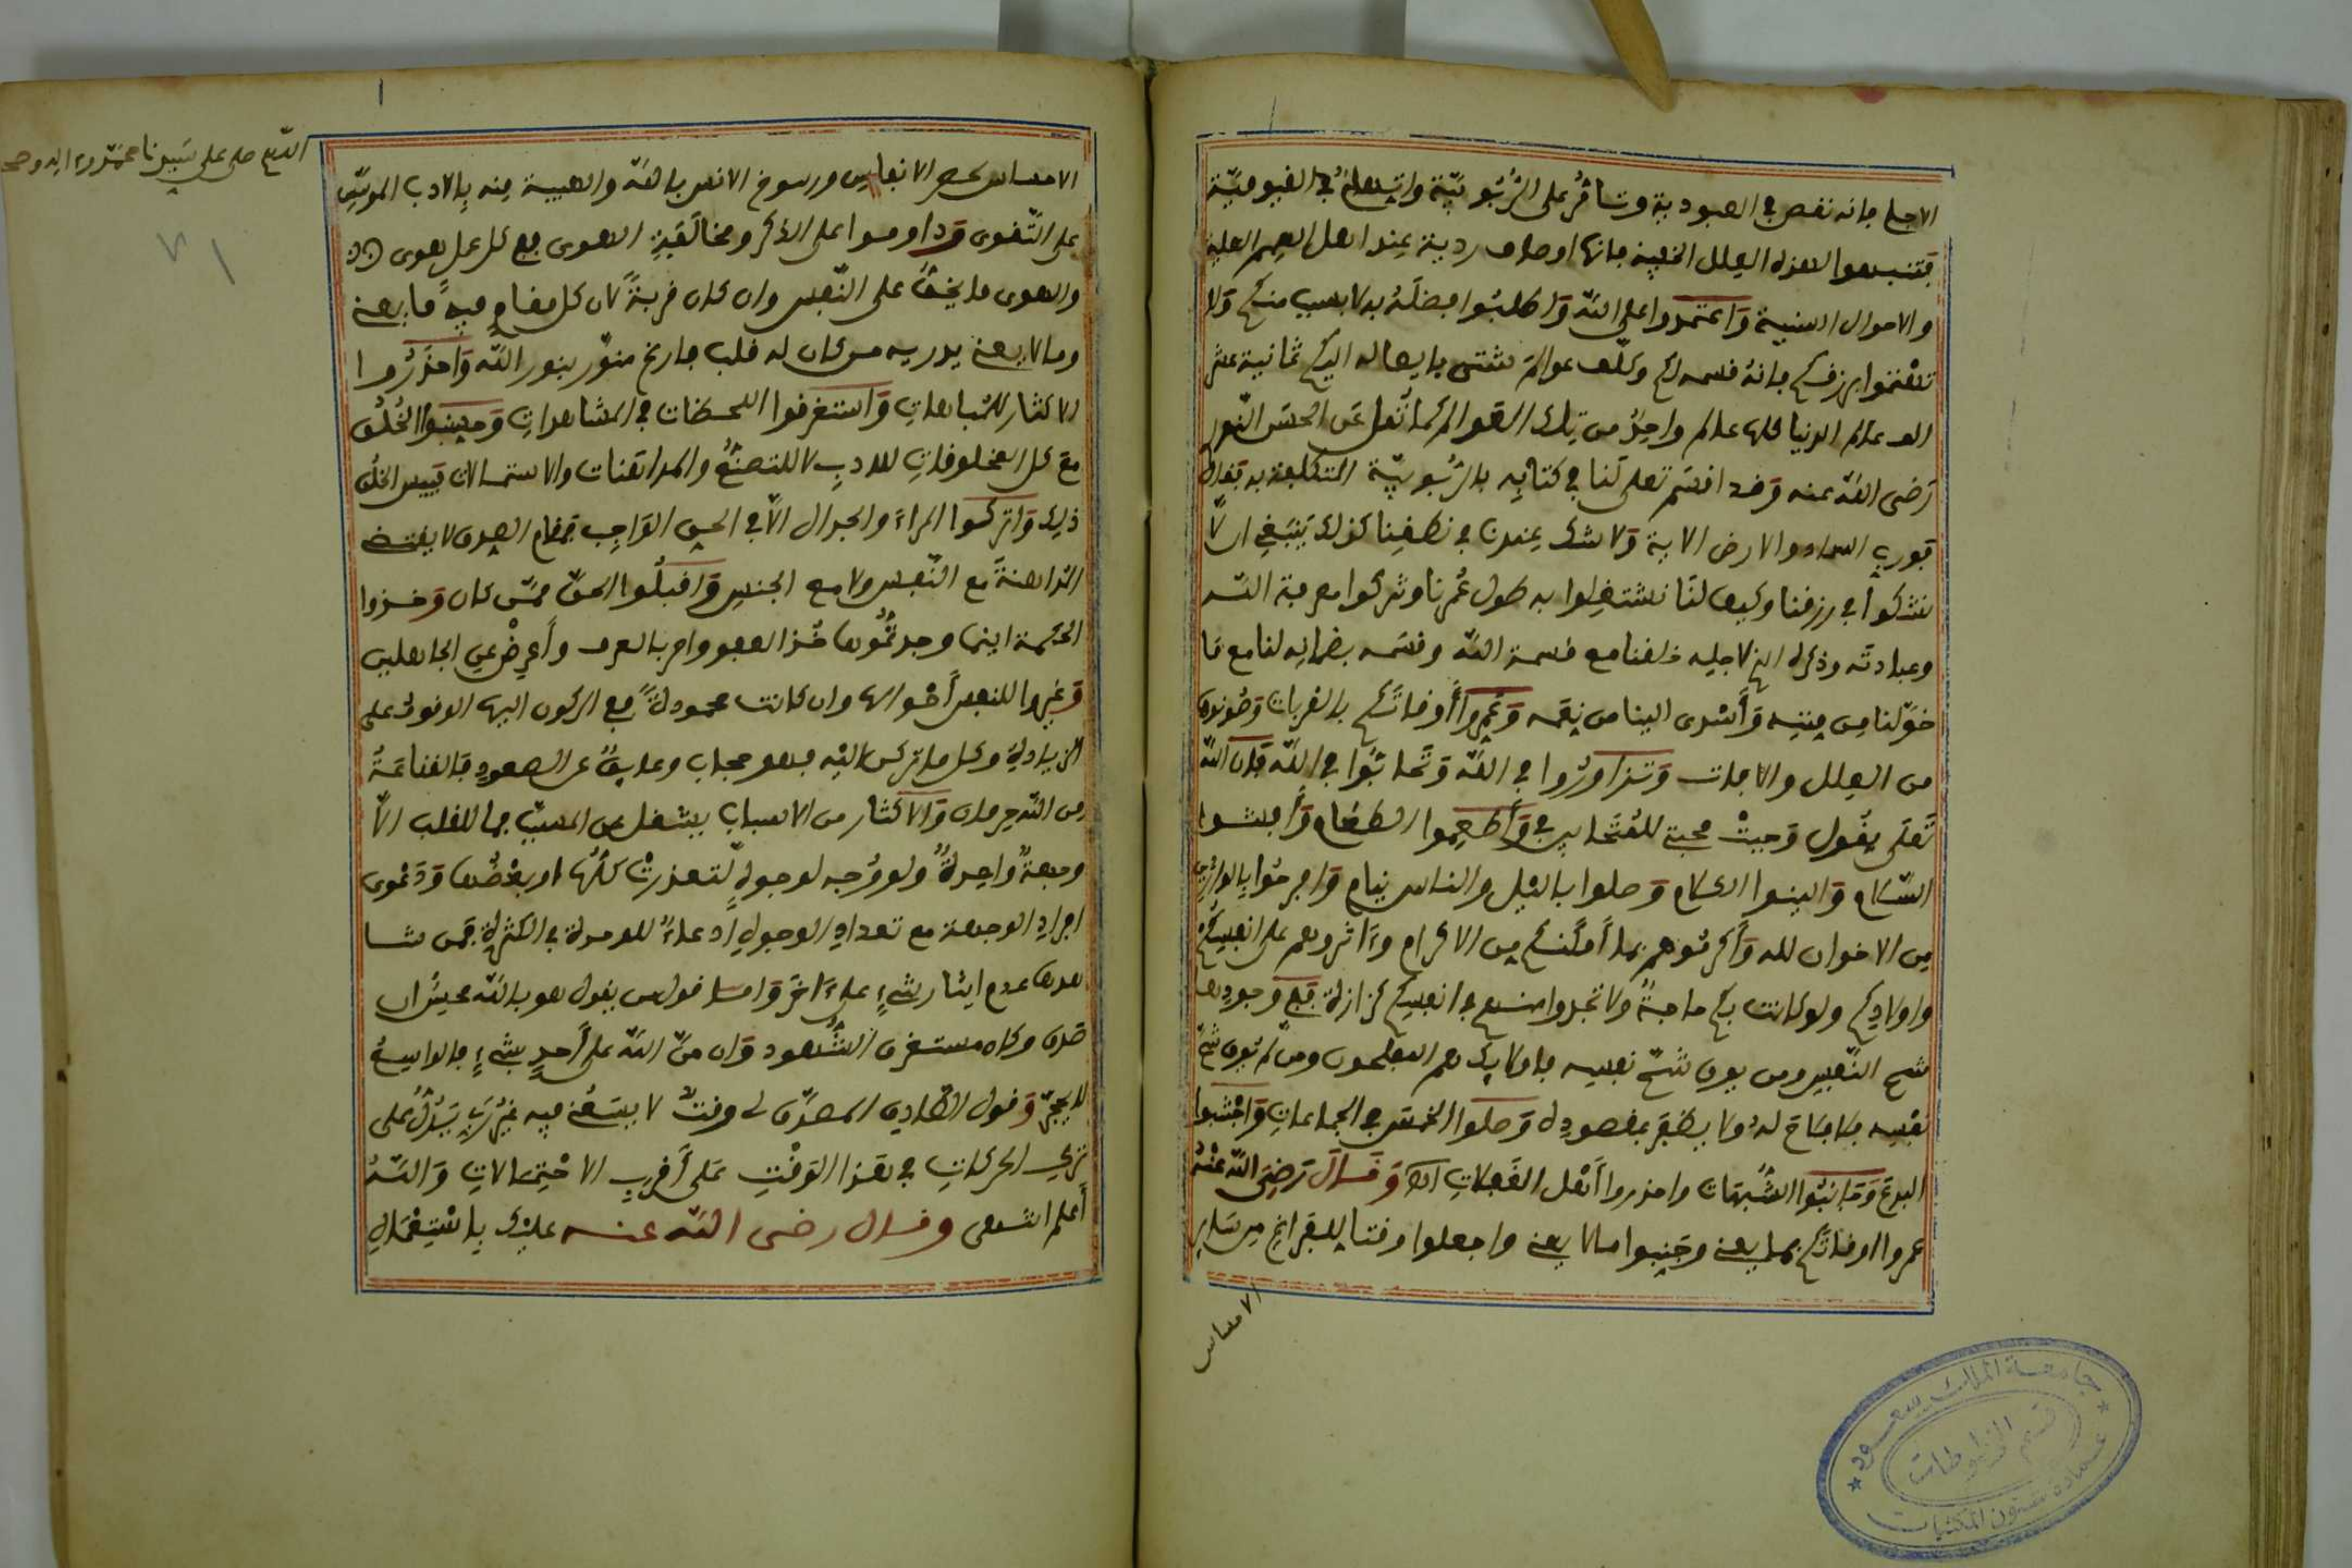 الاجل فإنه نقص في العبودية وتشاؤر على الرُّبُوبيّة واتّهام في القيومية
فتنبهوا لهذه العلل الخفية فإنها اوصاف ردية عند اهل الهمم العلية
والاحوال السنية وَاعتمدوا على الله وَاطلبوا فضلَهُ به لا بسبب منكم وَلا
تهتموا برزقكم فإنهُ قسمه لكم وكلّف عوالم شتى بإيصاله اليكم ثمانية عشر
الف عالم الدنيا كلها عالم واحدٌ من تلك العوالم كما نُقل عَن الحسَن النّور
رَضى الله عنه وَقد اقسَم تعلى لَنا في كتابِه بالرّبُوبيّة المتكلفة به بقوله
فورب السماء والارض الاية وَلا شك عندنا في نطقِنا كذلك يَنبَغي الّا
نشكوا في رزقنا وكيف لنَا نشتغلوا به طول عُمرنا ونتركوا معرفة الله
وعبادتَه وذكره الذى لاجله خلقنا مع قسمة الله وقسَمه بضمانه لنا مع مَا
خوّلنا مِن مِننِه وَأسْدى الينا من نِعَمه وَعَمِرُوا أوقاتَكم بالقربات وَصُونوها
من العِلل والافات وَتزاورُوا في الله وَتحابُّوا في الله فإن الله
تَعلى يقُول وَجبتْ محبتى للمُتَحابين في وَأطعِموا الطعَام وَأفشوا
السّلام وَالينوا الكلام وَصلوا بالليل والناس نيام وَافرحُوا بالوارد
مِن الاخوان لله وَأكرمُوهم بما أمكنكم من الاكرام وءَاثروهم على انفسِكمْ
واولادِكم ولو كانت بكم حاجةٌ ولا تجدوا منهم في انفسِكم كزازة فهى وجودها
شح النّفس ومن يوق شُحّ نفسه فاولايك هم المفلحون ومن لم يوق شحّ
نفسِه فلا فلاح لهُ ولا يظفر بمقصوده وَصلوا الخمسَ في الجماعات وَاخشوا
البدعَ وَجانبُوا الشُّبهات واحذروا أهْل الغَفلات اھ وَقَالَ رَضِىَ اللهُ عَنْهُ
عمروا اوقاتكم بما يعنى وجَنِبوا مالا يعنى واجعلوا وقتا للفراغ من سَاير
الاحساس
اللهم صل على سَيدنا محمّد وءاله وصحـ
٧١
الاحساس بحصر الانفاس ورسوخ الانس بالله والهيبة مِنه بالادب الموسّس
على التّقوى وَداوموا على الذكر ومخالَفةِ الهوى مع كل عمل يهوى
والهوى ما يخِفّ على النّفس وان كان قربةً لان كل مقامٍ فيه ما يعنى
وما لا يعنى يدريه من كان له قلب فارغ منوّر بنور الله وَاحذَرُوا
الاكثار للمُباهات وَاستغرقوا اللحظات في المشاهداتِ وَحسِّنوا الخُلُق
مع كل المخلوقاتِ للادبِ لا للتصنُّع والمداهنات والاستمالات فبيس الخُلُق
ذلك وَاتركوا المراءَ والجدال الّا في الحق الوَاجِب فمقام الصدق لا يقتضى
المداهنةَ مع النّفس ولا مع الجنس وَاقبلُوا الحق ممّن كان وَخذوا
الحكمة اينما وجدتمُوها خُذ العفو وامر بالعرف وأَعرِضْ عن الجاهلين
وَغيروا للنفس أحْوالها وان كانت محمودةً مع الركون اليها الوقوفُ على
الزيادةِ وكل ما تركن اليْه فهو حجاب وعايقٌ عن الصعودِ فالقناعَةُ
مِن الله حِرمان وَالاكثار من الاسباب يشغل عن المسبّب فما للقلب الّا
وجهةٌ واحدةٌ ولو وُجه لوجوهٍ لتعذرتْ كلُّها او بعْضُها وَدَعْوى
افراد الوجهة مع تعدادِ الوجوهِ ادّعاءٌ للوحدة في الكثرةِ فمن شا
هدها عدم ايثار شىءٍ على ءَاخرَ وَاما قول من يقول هو بالله عيشه ان
صدق وكان مستغرق الشُّهود وَان منّ الله على أحدٍ بشىءٍ فالوابسةُ
للبحرِّ وَقول الصّادق المصدّق لى وقتٌ لا يسَعُنى فيه غيْر رَبى يَدُلُّ على
تركِ الحركاتِ في هذا الوَقْتِ عَلى أقربِ الاحْتِمالاتِ وَاللهُ
أعلم انتهى وقال رضى الله عنه عليك باشتغال
جامعة الملك سعود
قسم المخطوطات
عمادة شؤون المكتبات